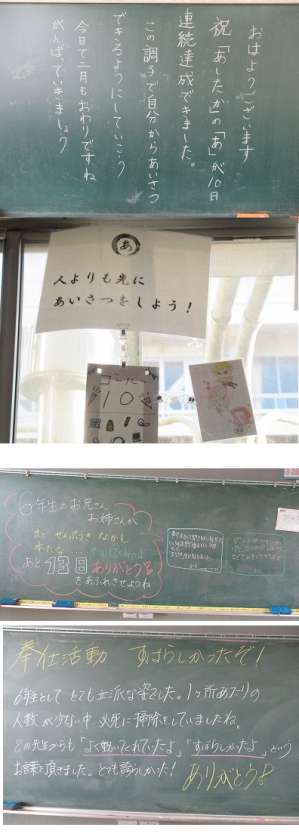 おはようございます
祝「あしたか」の「あ」が10日
連続達成できました。
この調子で自分からあいさつ
できるようにしていこう
今日で二月もおわりですね
がんばっていきましょう
あ
人よりも先に
あいさつをしよう!
ゴールに
10
6年生のお兄さん
お姉さんが
あと13日
ありがとうを
あふれさせようね
奉仕活動 すばらしかったぞ!
6年生として とても立派な姿でした。1ヶ所あたりの
人数が少ない中 必死に掃除をしていましたね。
どの先生からも「よく動いてくれていたよ」「すばらしかったよ」という
お言葉を頂きました。とても誇らしかった!
ありがとう